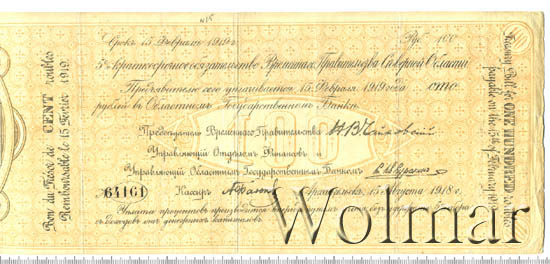 Срокъ 15 Февраля 1919 г. Руб. 100
5% краткосрочное обязательство Временнаго Правительства Сѣверной Области
Предъявителю сего уплачивается 15 Февраля 1919 года сто
рублей въ Областномъ Государственномъ Банкѣ.
Предсѣдатель Временнаго Правительства Н В Чайковскій
Управляющій Отдѣломъ Финансовъ
Управляющій Областнымъ Государственнымъ Банкомъ
№ 64161 Кассиръ Архангельскъ, 15 Августа 1918 г.
Уплата процентовъ производится
съ доходовъ отъ денежныхъ капиталовъ.
Bon du Trésor de CENT roubles
Remboursable le 15 Février 1919.
Treasury Bill for ONE HUNDRED roubles
payable on the 15th of February 1919
100
Wolmar